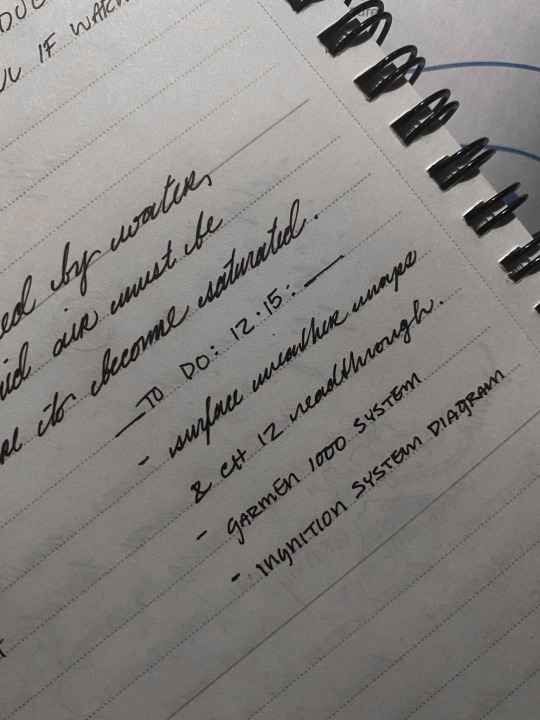 IF WATER
ed by water,
id air must be
to become saturated.
TO DO: 12.15:
- surface weather maps
& CH 12 readthrough.
- GARMEN 1000 SYSTEM
- INGNITION SYSTEM DIAGRAM